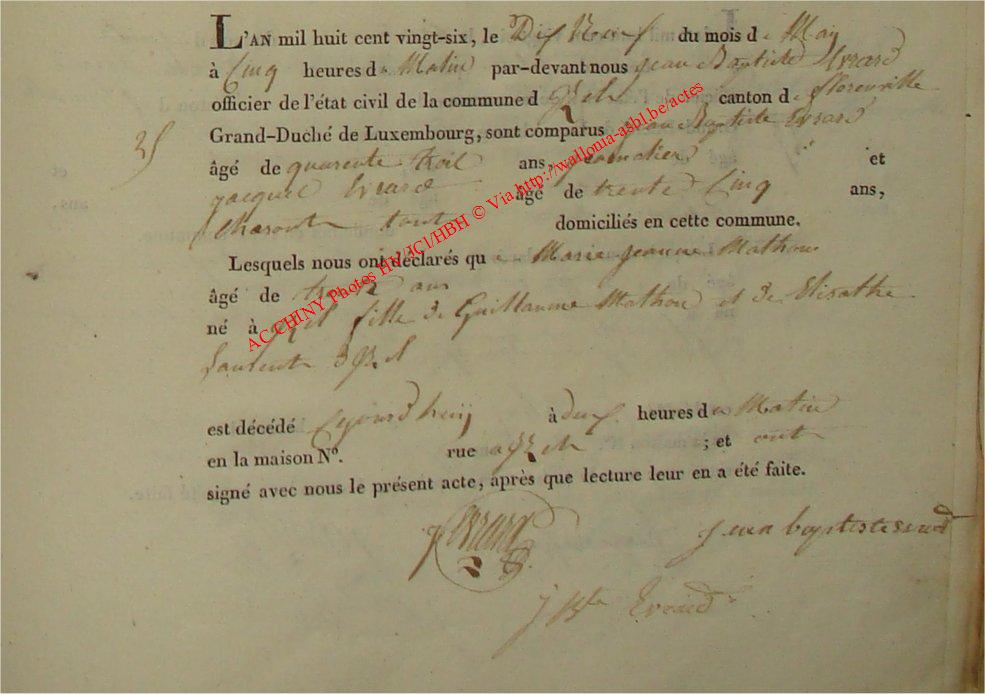 L'AN mil huit cent vingt-six, le Dix Neuf du mois de May
à Cinq heures du Matin par-devant nous Jean Baptiste Evrard
officier de l'état civil de la commune d'Izel canton de florenville
Grand-Duché de Luxembourg, sont comparus Jean Baptiste Evrard
35
âgé de quarente troi ans, et
jacque Evrard âgé de trente Cinq ans,
tout domiciliés en cette commune.
Lesquels nous ont déclarés que Marie jeanne Mathon
âgé de ans
né à izel fille de Guillaume Mathon et de Elisathe
Laurent d'izel
est décédé à deux heures du Matin
en la maison N°. rue a izel ; et ont
signé avec nous le présent acte, après que lecture leur en a été faite.
J Evrard
jean baptiste evrard
J Bte Evrard
AC CHINY Photos HV/JCl/HBH © Via http://wallonia-asbl.be/actes